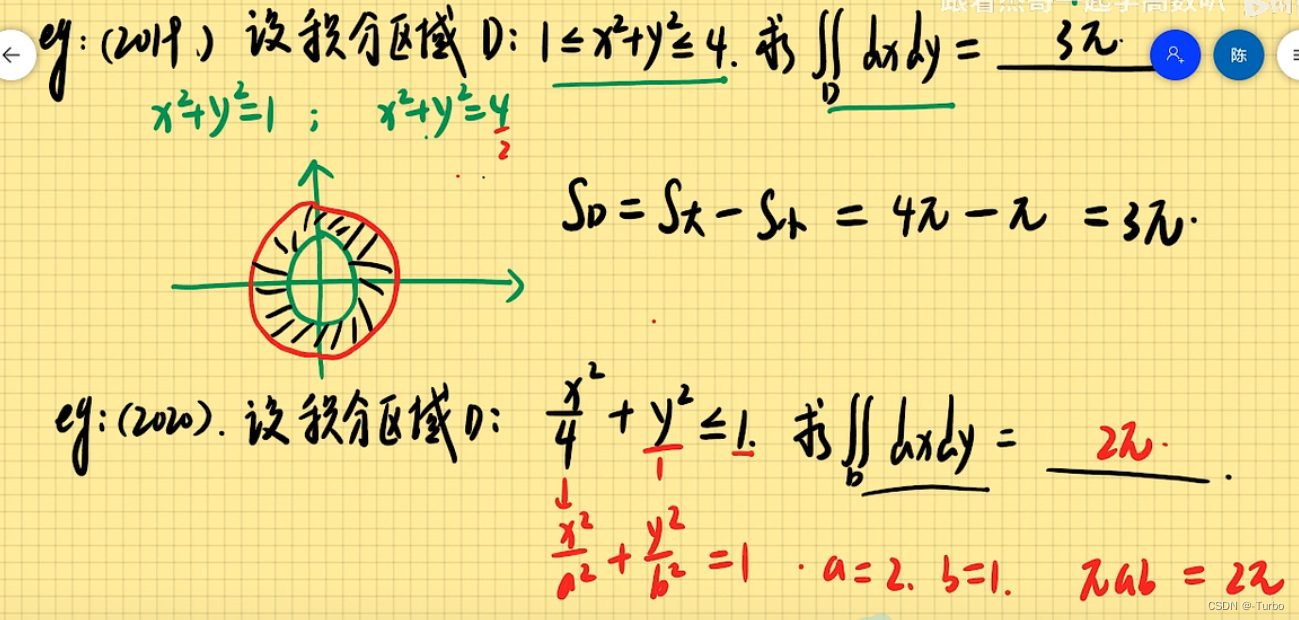 跟着杰哥一起学高数叭
eg:(2019.) 设积分区域 D: 1≤x²+y²≤4. 求 ∬_D dxdy = 3π.
陈
x²+y²=1 ; x²+y²=4
2
S_D = S_大 - S_小 = 4π - π = 3π.
eg:(2020). 设积分区域 D: x²/4 + y² ≤ 1. 求 ∬_D dxdy = 2π.
1
x²/a² + y²/b² = 1 . a=2. b=1. πab = 2π
CSDN @-Turbo